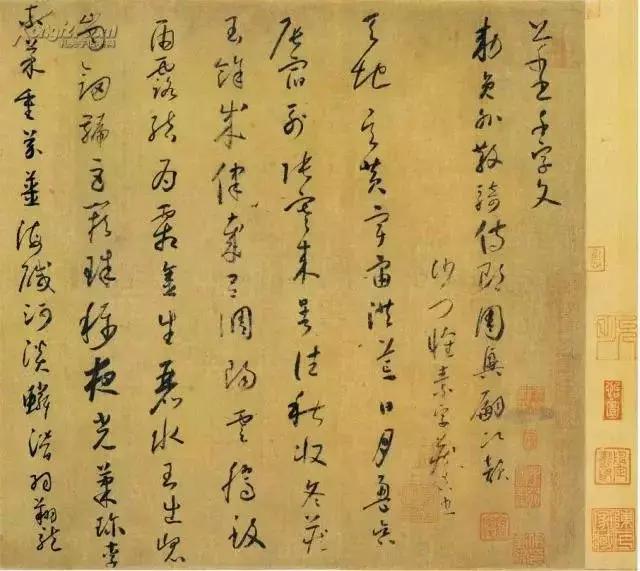 千字文
勅員外散騎侍郎周興嗣次韻
沙門懷素字藏真也
天地玄黃宇宙洪荒日月盈昃
辰宿列張寒來暑往秋收冬藏
閏餘成歲律呂調陽雲騰致
雨露結為霜金生麗水玉出崑
崗劍號巨闕珠稱夜光菓珍李
柰菜重芥薑海鹹河淡鱗潛羽翔龍